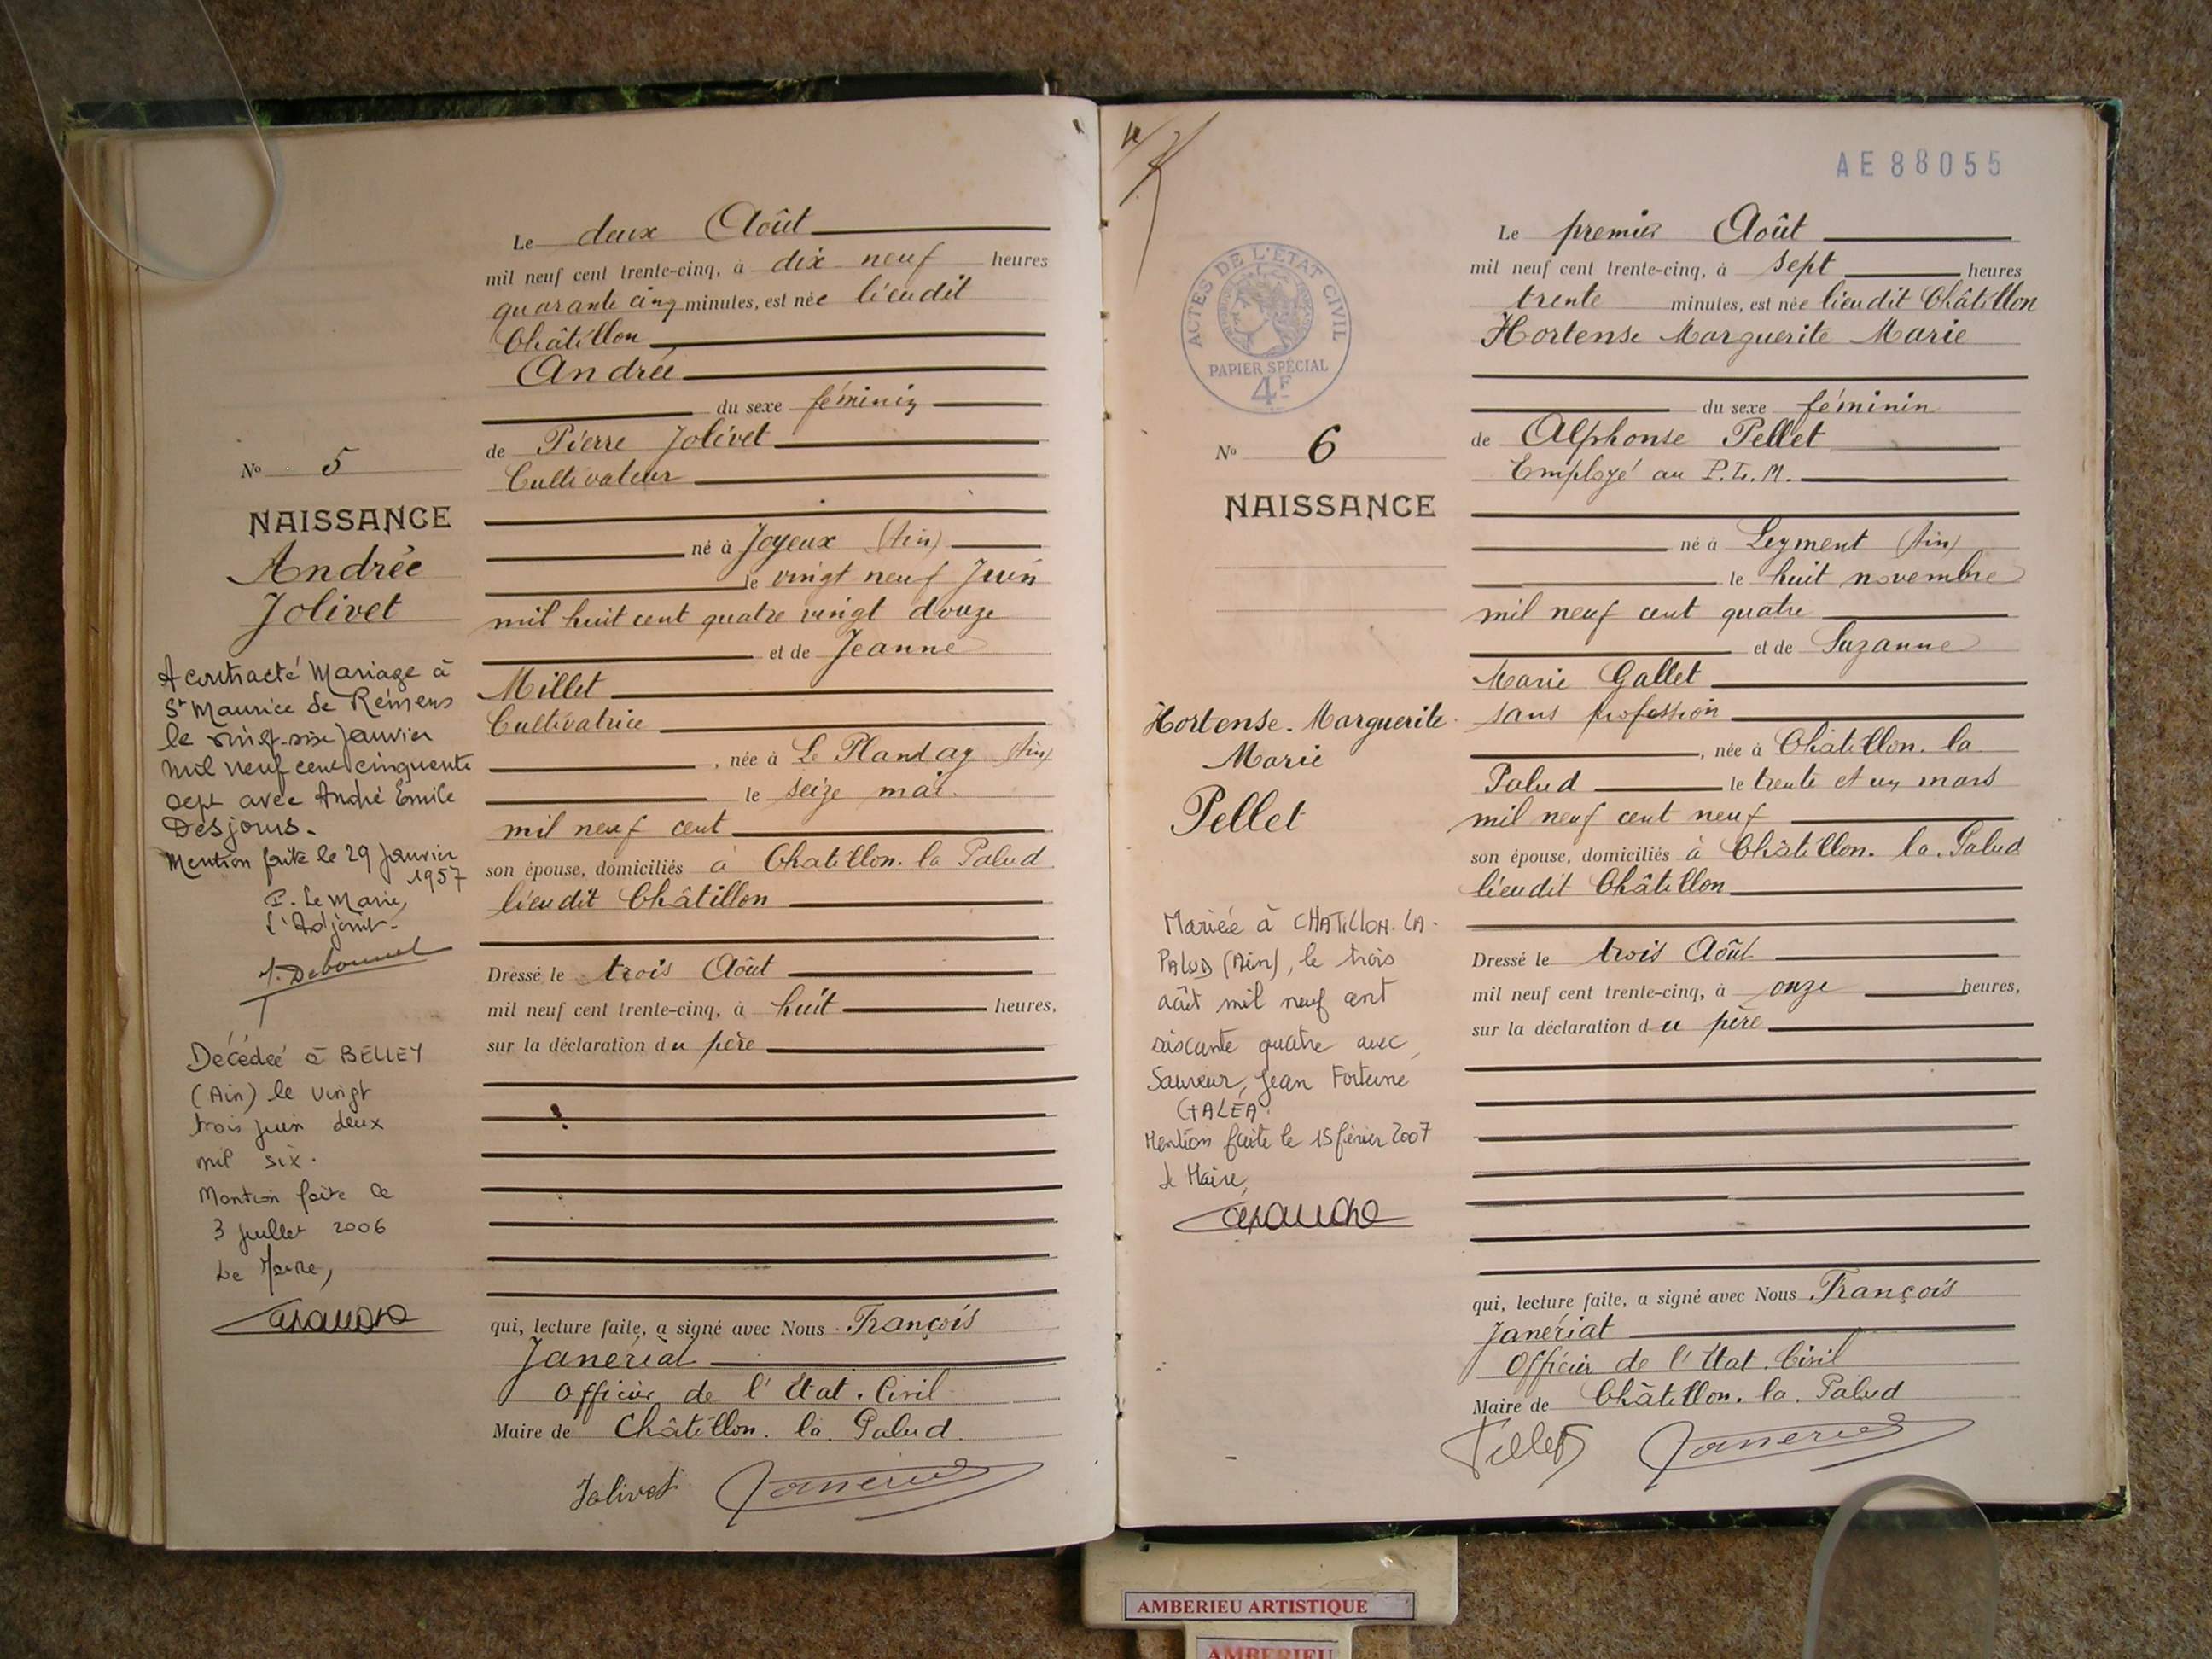 Le deux Août
mil neuf cent trente-cinq, à dix neuf heures
quarante cinq minutes, est née lieudit
Châtillon
Andrée
du sexe féminin
de Pierre Jolivet
Cultivateur
né à Joyeux (Ain)
le vingt neuf Juin
mil huit cent quatre vingt douze
et de Jeanne
Millet
Cultivatrice
, née à Le Plantay (Ain)
le seize mai
mil neuf cent
son épouse, domiciliés à Châtillon. la Palud
lieudit Châtillon
Dressé le trois Août
mil neuf cent trente-cinq, à huit heures,
sur la déclaration du père
qui, lecture faite, a signé avec Nous François
Janériat
Officier de l'Etat. Civil
Maire de Châtillon. la. Palud.
Jolivet Janériat
No 5
NAISSANCE
Andrée
Jolivet
A contracté Mariage à
St Maurice de Rémens
le vingt-six janvier
mil neuf cent cinquante
sept avec André Emile
Desjours.
Mention faite le 29 Janvier
1957
P. Le Maire,
L'Adjoint.
Décédée à BELLEY
(Ain) le vingt
trois juin deux
mil six.
Mention faite le
3 juillet 2006
Le Maire,
AE88055
ACTES DE L'ETAT CIVIL
PAPIER SPÉCIAL
4F
Le premier Août
mil neuf cent trente-cinq, à sept heures
trente minutes, est née lieudit Châtillon
Hortense Marguerite Marie
du sexe féminin
de Alphonse Pellet
Employé au P.L.M.
né à Leyment (Ain)
le huit novembre
mil neuf cent quatre
et de Suzanne
Marie Gallet
sans profession
, née à Châtillon. la
Palud le trente et un mars
mil neuf cent neuf
son épouse, domiciliés à Châtillon. la. Palud
lieudit Châtillon
Dressé le trois Août
mil neuf cent trente-cinq, à onze heures,
sur la déclaration du père
qui, lecture faite, a signé avec Nous François
Janériat
Officier de l'Etat. Civil
Maire de Châtillon. la. Palud
Pellet Janériat
No 6
NAISSANCE
Hortense. Marguerite.
Marie
Pellet
Mariée à CHATILLON. LA.
PALUD (Ain), le trois
août mil neuf cent
soixante quatre avec
Sauveur, Jean Fortune
GALÉA.
Mention faite le 15 février 2007
Le Maire,
AMBERIEU ARTISTIQUE
AMBERIEU